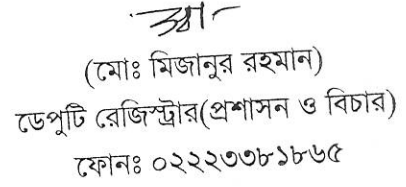 (মোঃ মিজানুর রহমান)
ডেপুটি রেজিস্ট্রার(প্রশাসন ও বিচার)
ফোনঃ ০২২২৩৩৮১৮৬৫